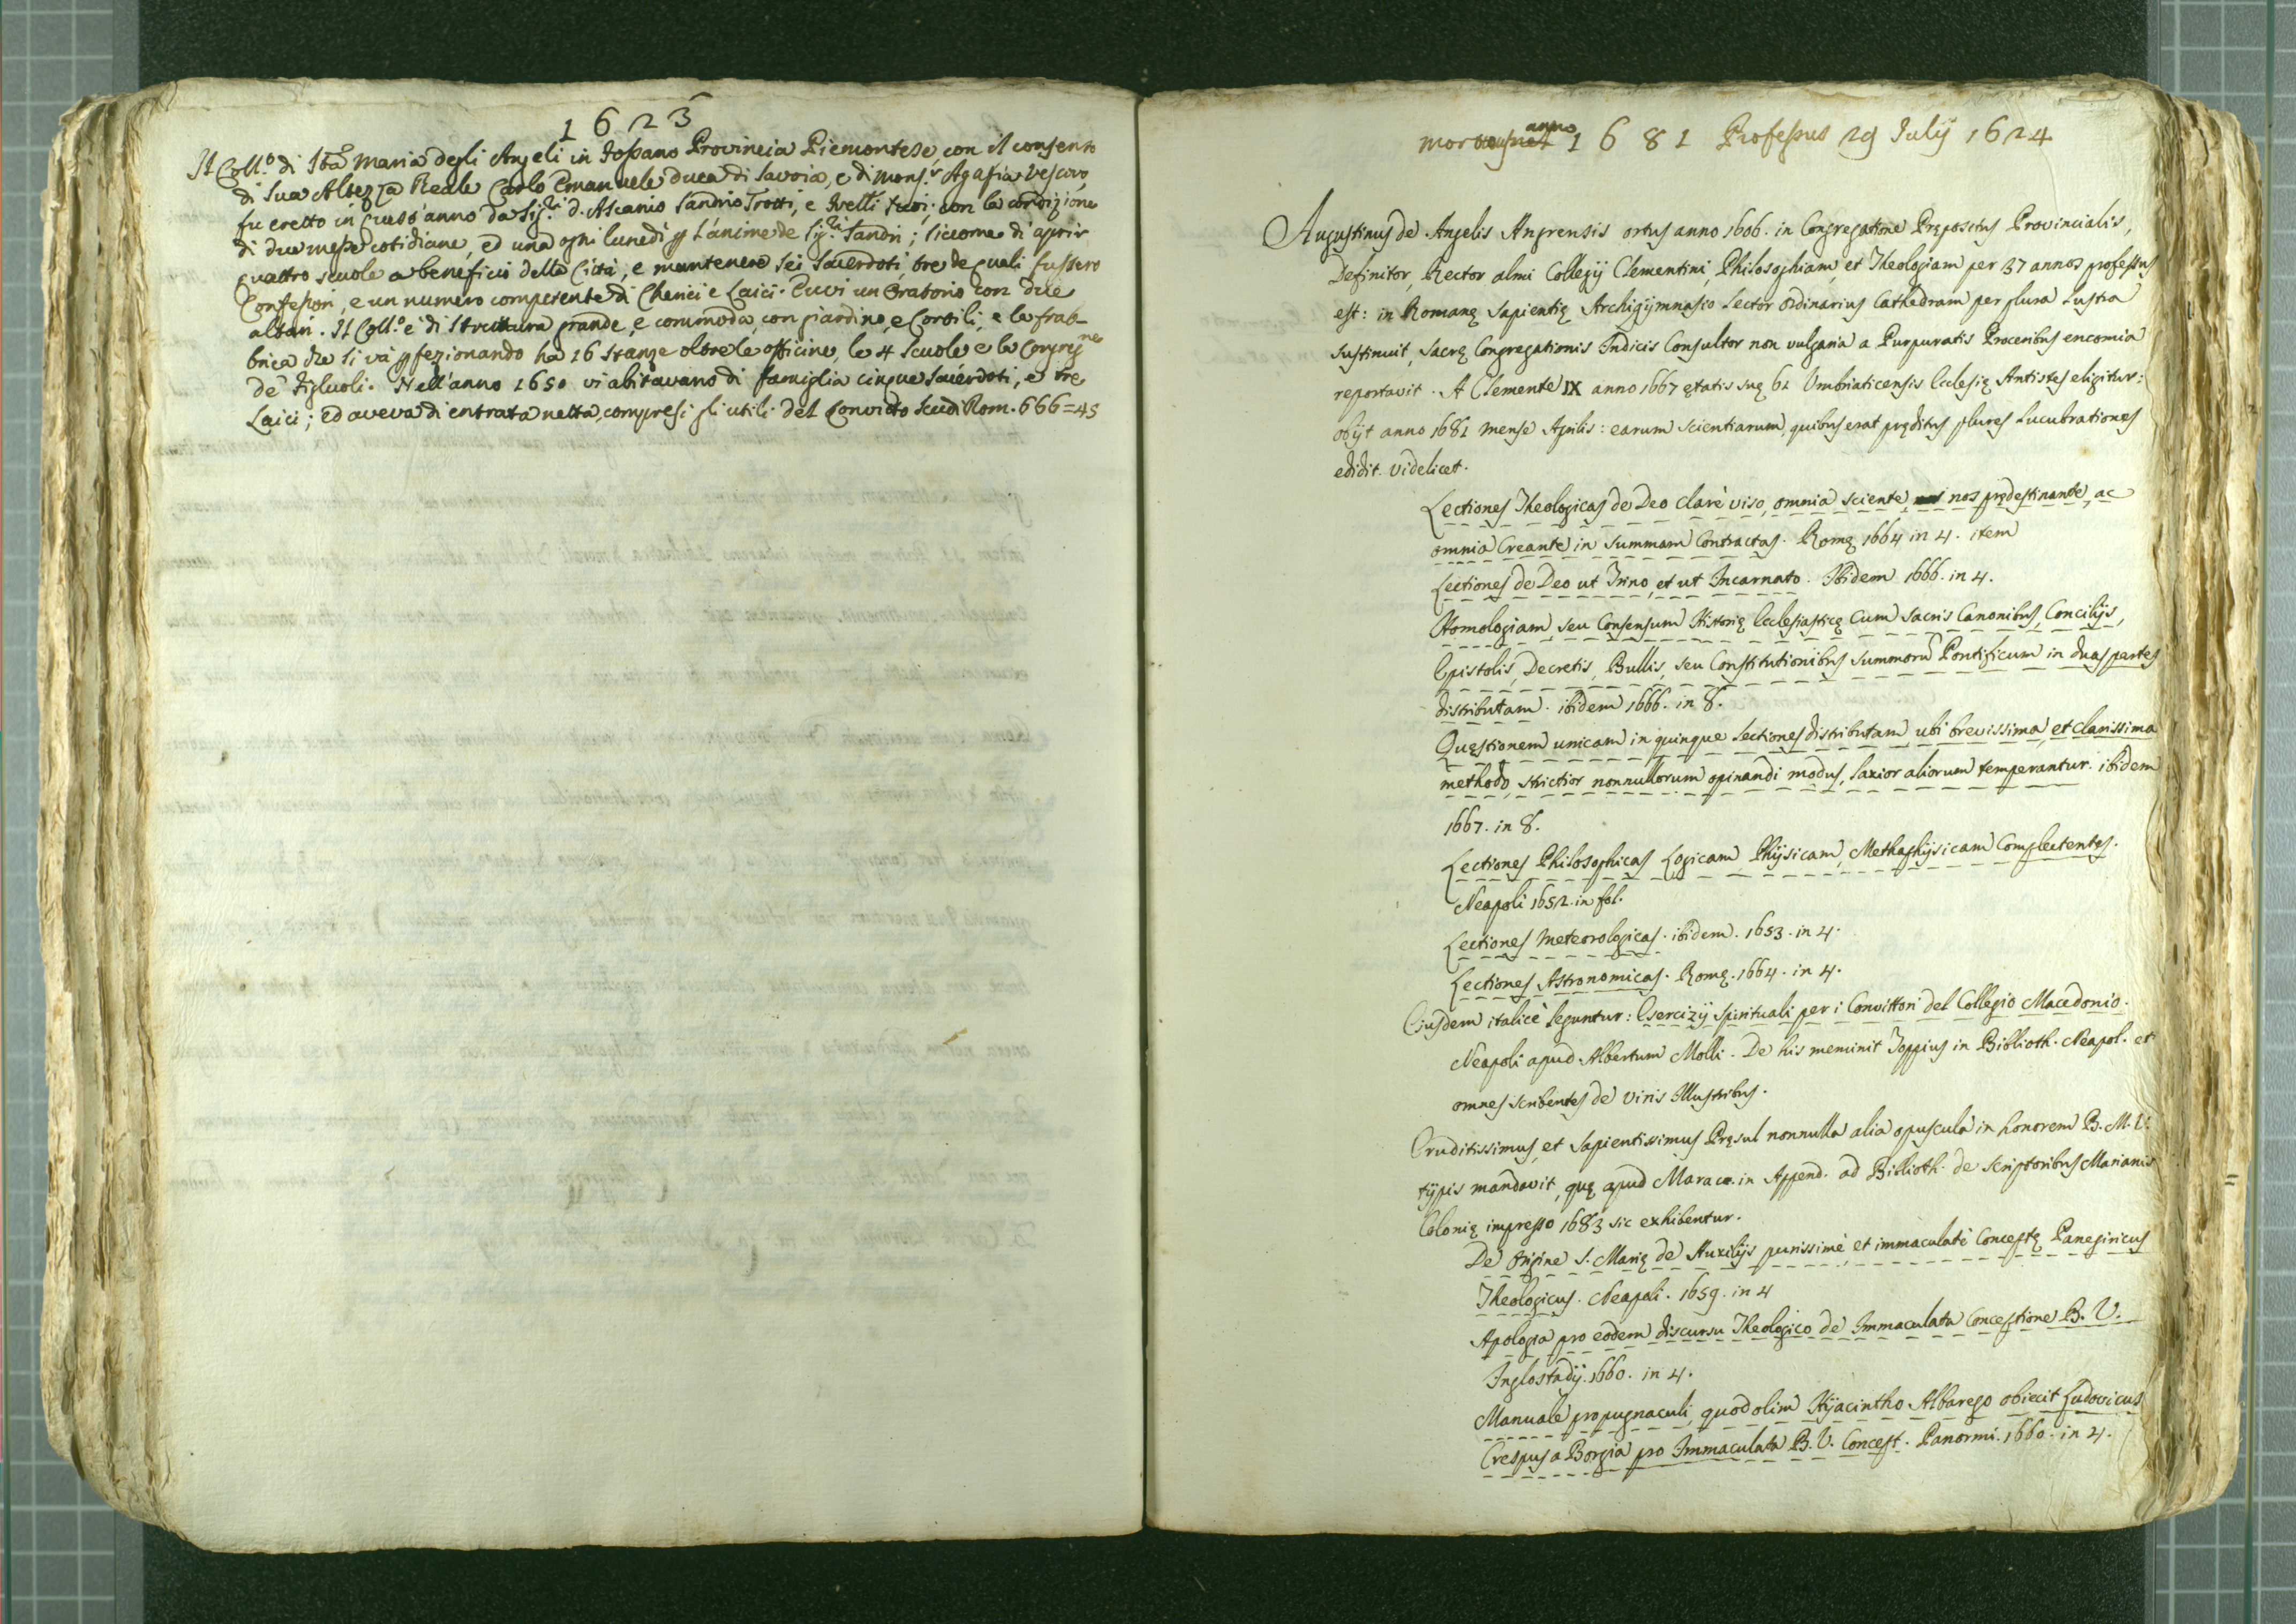 1623
Il Coll.o di Sta Maria degli Angeli in Fossano Provincia Piemontese, con il consenso
di Sua Altezza Reale Carlo Emanuele Duca di Savoia, e di Mons.r Agassia Vescovo
fu eretto in quest'anno da Sig.ri d. Ascanio Sandrio Trotti, e fratelli suoi; con la condizione
di due messe cotidiane, ed una ogni lunedi p l'anime de Sig.ri Sandri; siccome di aprir
quattro scuole a beneficio della Città, e mantenere sei Sacerdoti, tre de quali fussero
Confessori, e un numero competente di Chierici e Laici. Euvi un Oratorio con due
altari. Il Coll.o è di struttura grande, e commoda, con giardino, e Cortili, e la frab-
brica che si và pfezionando ha 16 stanze oltre le officine, le 4 scuole e la Congrg.ne
de figliuoli. Nell'anno 1650 vi abitavano di famiglia cinque Sacerdoti, e tre
Laici; ed aveva di entrata netta, compresi gli utili del Convitto Scudi Rom. 666=45
anno 1681 Professus 29 Julij 1624
Augustinus de Angelis Angrensis ortus anno 1606. in Congregatione Prępositus Provincialis,
Definitor, Rector almi Collegij Clementini, Philosophiam, et Theologiam per 37 annos professus
est: in Romanę Sapientię Archigymnasio Lector ordinarius Cathedram per plura Lustra
sustinuit, Sacrę Congregationis Indicis Consultor non vulgaria a Purpuratis Proceribus encomia
reportavit. A Clemente IX anno 1667 ętatis suę 61 Umbriaticensis Ecclesię Antistes eligitur:
obijt anno 1681 mense Aprilis: earum scientiarum, quibus erat pręditus plures Lucubrationes
edidit. videlicet.
Lectiones Theologicas de Deo clarè viso, omnia sciente, nos prędestinante, ac
omnia Creante in summam Contractas. Romę 1664 in 4. item
Lectiones de Deo ut Trino, et ut Incarnato. Ibidem 1666. in 4.
Homologiam, seu Consensum Historię Ecclesiasticę Cum Sacris Canonibus, Concilijs,
Epistolis, Decretis, Bullis, seu Constitutionibus summorũ Pontificum in duas partes
distributam. ibidem 1666. in 8.
Quęstionem unicam in quinque Lectiones distributam, ubi brevissima, et clarissima
methodo, strictior nonnullorum opinandi modus, laxior aliorum temperantur. ibidem
1667. in 8.
Lectiones Philosophicas Logicam, Physicam, Methaphysicam Complectentes.
Neapoli 1652. in fol.
Lectiones Meteorologicas. ibidem. 1653. in 4.
Lectiones Astronomicas. Romę. 1664. in 4.
Eiusdem italicè leguntur: Esercizij Spirituali per i Convittori del Collegio Macedonio.
Neapoli apud Albertum Molli. De his meminit Toppius in Biblioth. Neapol. et
omnes scribentes de Viris Illustribus.
Eruditissimus, et Sapientissimus Pręsul nonnulla alia opuscula in honorem B. M. V.
typis mandavit, quę apud Marac. in Append. ad Biblioth. de scriptoribus Marianis
Colonię impresso 1683 sic exhibentur.
De Origine S. Marię de Auxilijs purissimè, et immaculatè Conceptę Panegiricus
Theologicus. Neapoli. 1659. in 4
Apologia pro eodem discursu Theologico de Immaculata Conceptione B. V.
Inglostadij. 1660. in 4.
Manuale propugnaculi, quod olim Hyacintho Albarego obiecit Ludovicus
Crespus a Borgia pro Immaculata B. V. Concept. Panormi. 1660. in 4.